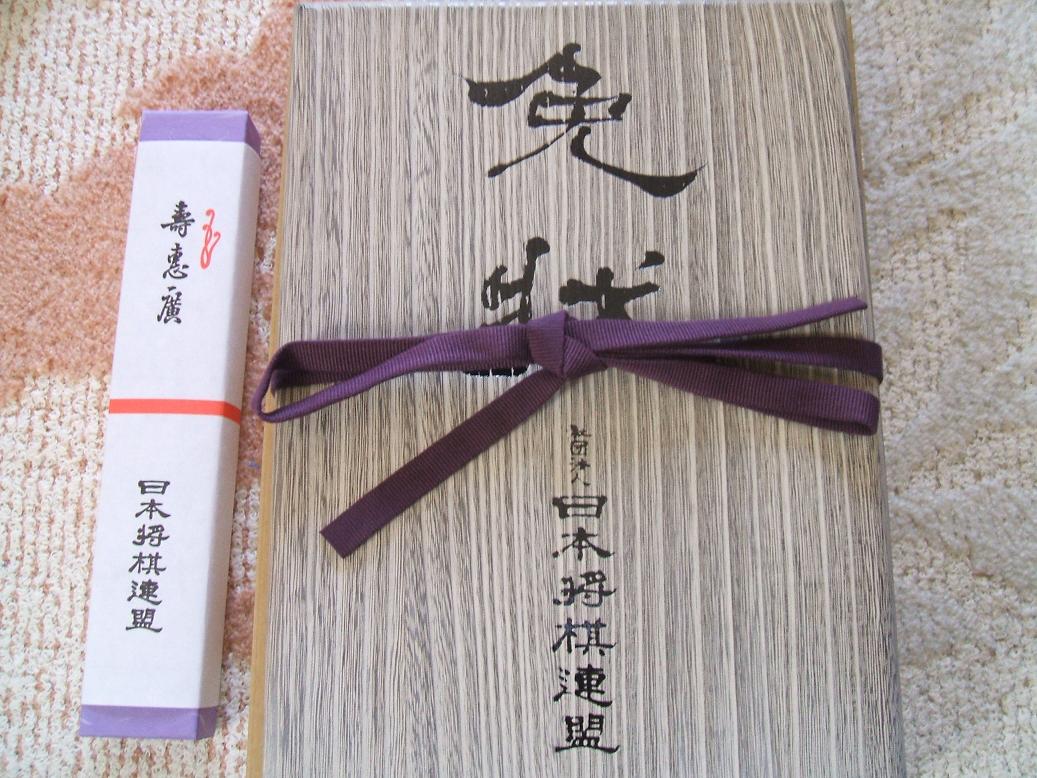 免状
社団法人
日本将棋連盟
壽惠廣
日本将棋連盟